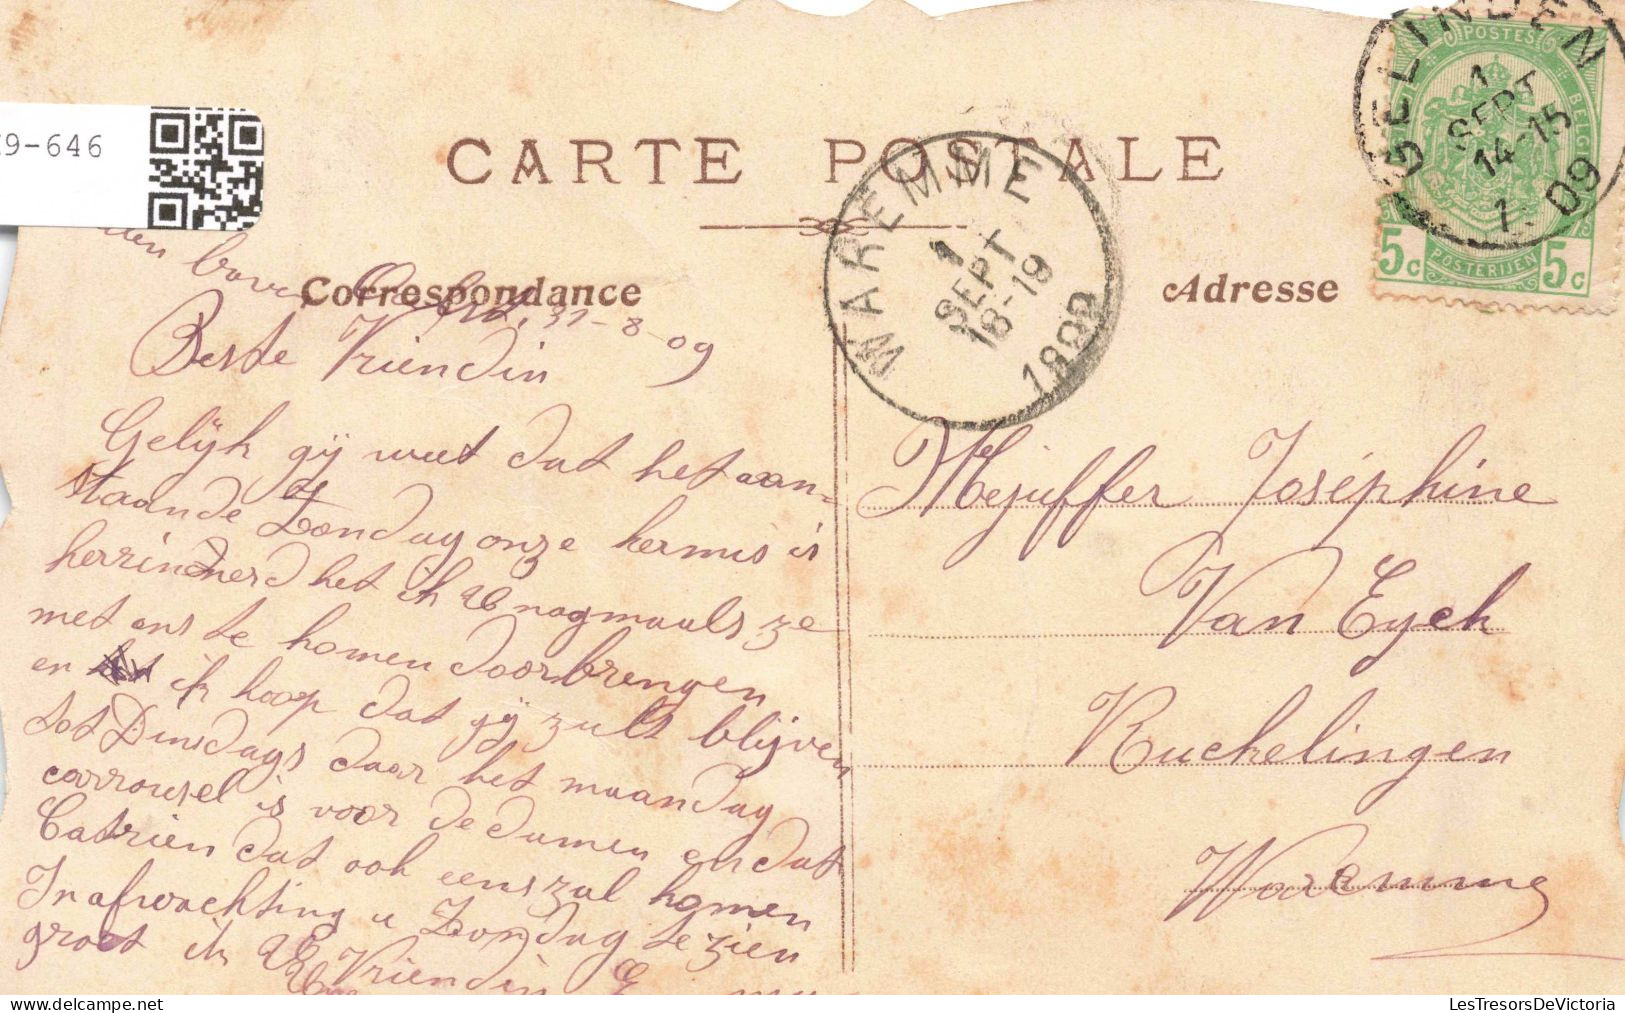 9-646
CARTE POSTALE
Correspondance
Adresse
GELINDEN
1
SEPT
14-15
1. 09
POSTES
BELGIQUE
5c POSTERIJEN 5c
WAREMME
1
SEPT
18-19
boven 31-8-09
Beste Vriendin
Gelijk gij weet dat het aan-
staande Zondag onze kermis is
het ik U nogmaals ze
met ons te komen doorbrengen
en ik hoop dat gij zult blijven
tot Dinsdags daar het maandag
carrousel is voor de damen en dat
Catrien dat ook eens zal komen
In afwachting u Zondag te zien
groet ik U Vriendin
Mejuffer Joséphine
Van Eyck
Ruckelingen
Waremme
LesTresorsDeVictoria